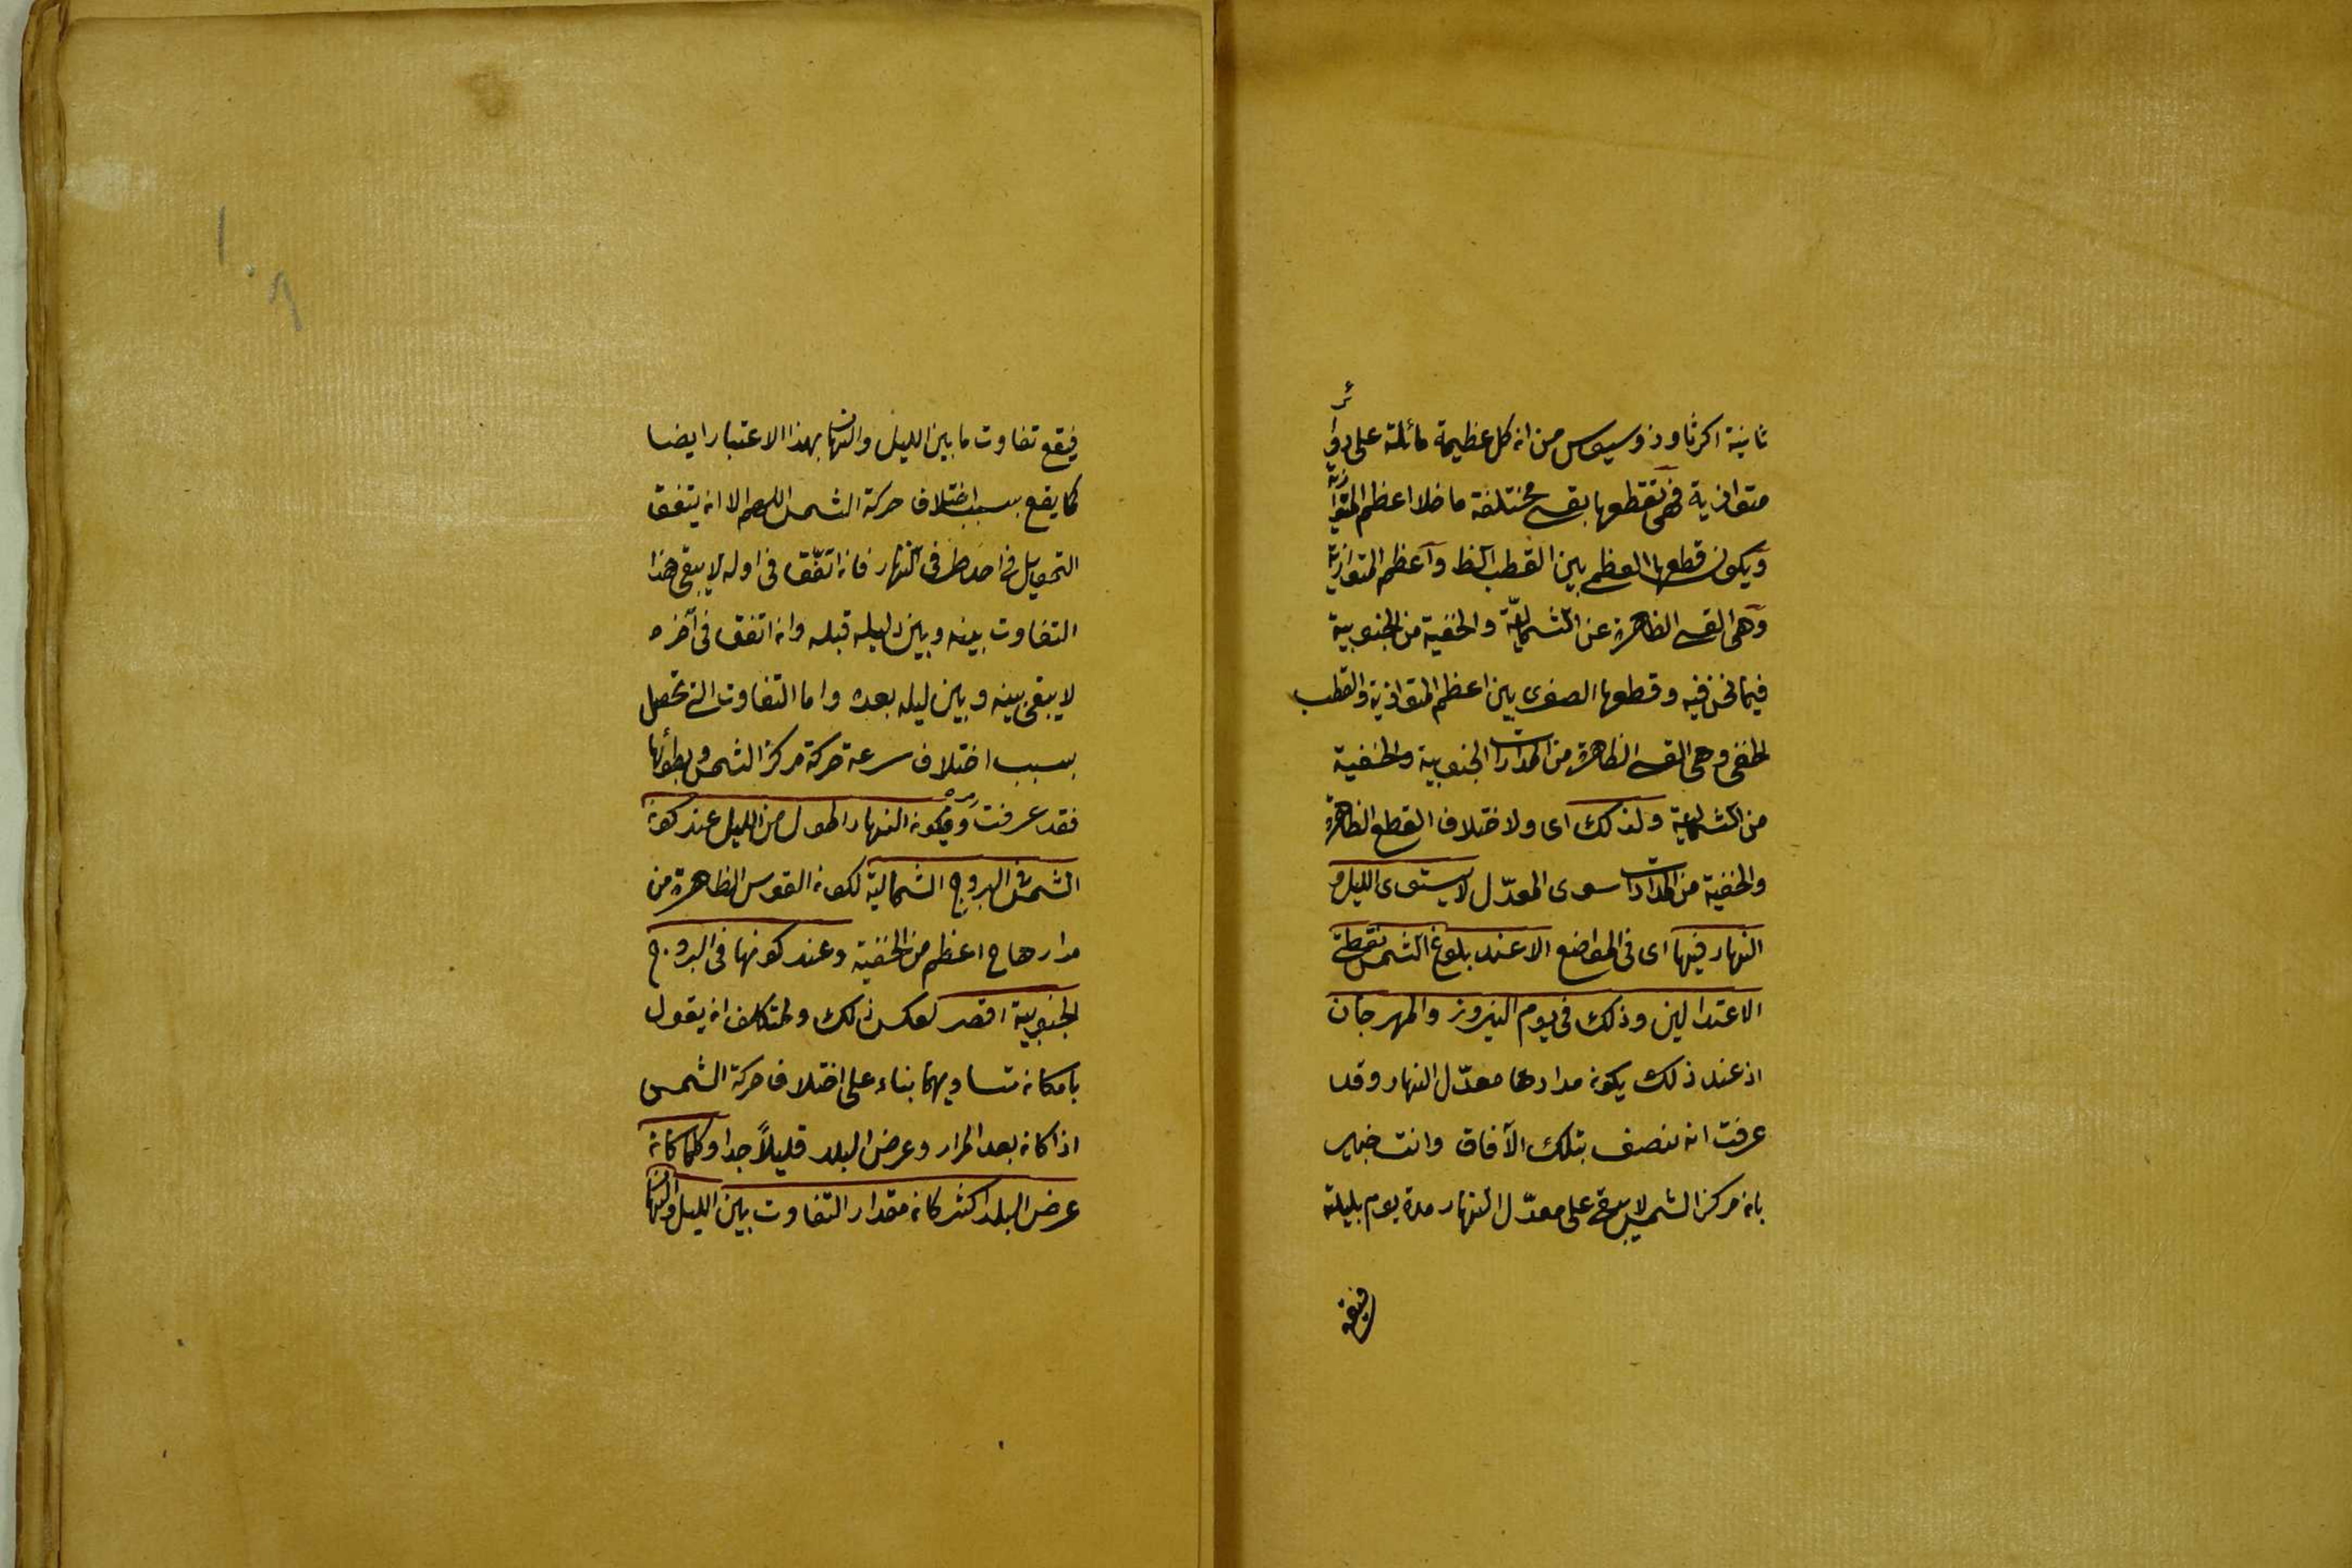 ثانية اكرثاوذوسيوس من ان كل عظيمة مائلة على دوائر
متوازية فهى تقطعها بقسى مختلفة ما خلا اعظم المتوازية
ويكون قطعها العظمى بين القطب الظ واعظم المتوازية
وهى القسى الظاهرة عن الشمالية والخفية من الجنوبية
فيما نحن فيه وقطعها الصغرى بين اعظم المتوازية والقطب
الخفى وهى القسى الظاهرة من المدارات الجنوبية والخفية
من الشمالية ولذلك اى ولاختلاف القطع الظاهرة
والخفية من المدارات سوى المعدّل لا يستوى الليل و
النهار فيها اى فى المواضع الا عند بلوغ الشمس نقطتى
الاعتدالين وذلك فى يوم النيروز والمهرجان
اذ عند ذلك يكون مدارها معدّل النهار وقد
عرفت انه ينصف بتلك الآفاق وانت خبير
بان مركز الشمس لا يبقى على معدّل النهار مدة يوم بليلته
فيقع
١٠٨
فيقع تفاوت ما بين الليل والنهار بهذا الاعتبار ايضا
كما يقع بسبب اختلاف حركة الشمس اللهم الا ان يتفق
التحويل فى احد طرفى النهار فان اتفّق فى اوله لا يبقى هذا
التفاوت بينه وبين ليله قبله وان اتفق فى آخره
لا يبقى بينه وبين ليله بعده واما التفاوت التى تحصل
بسبب اختلاف سرعة حركة مركز الشمس وبطؤها
فقد عرفت ويكون النهار اطول من الليل عند كون
الشمس فى البروج الشمالية لكون القوس الظاهرة من
مدارها ح اعظم من الخفية وعند كونها فى البروج
الجنوبية اقصر لعكس ذلك وللمتكلف ان يقول
بامكان تساويهما بناء على اختلاف حركة الشمس
اذا كان بعد المدار وعرض البلد قليلاً جدا وكلما كان
عرض البلد اكثر كان مقدار التفاوت بين الليل والنهار